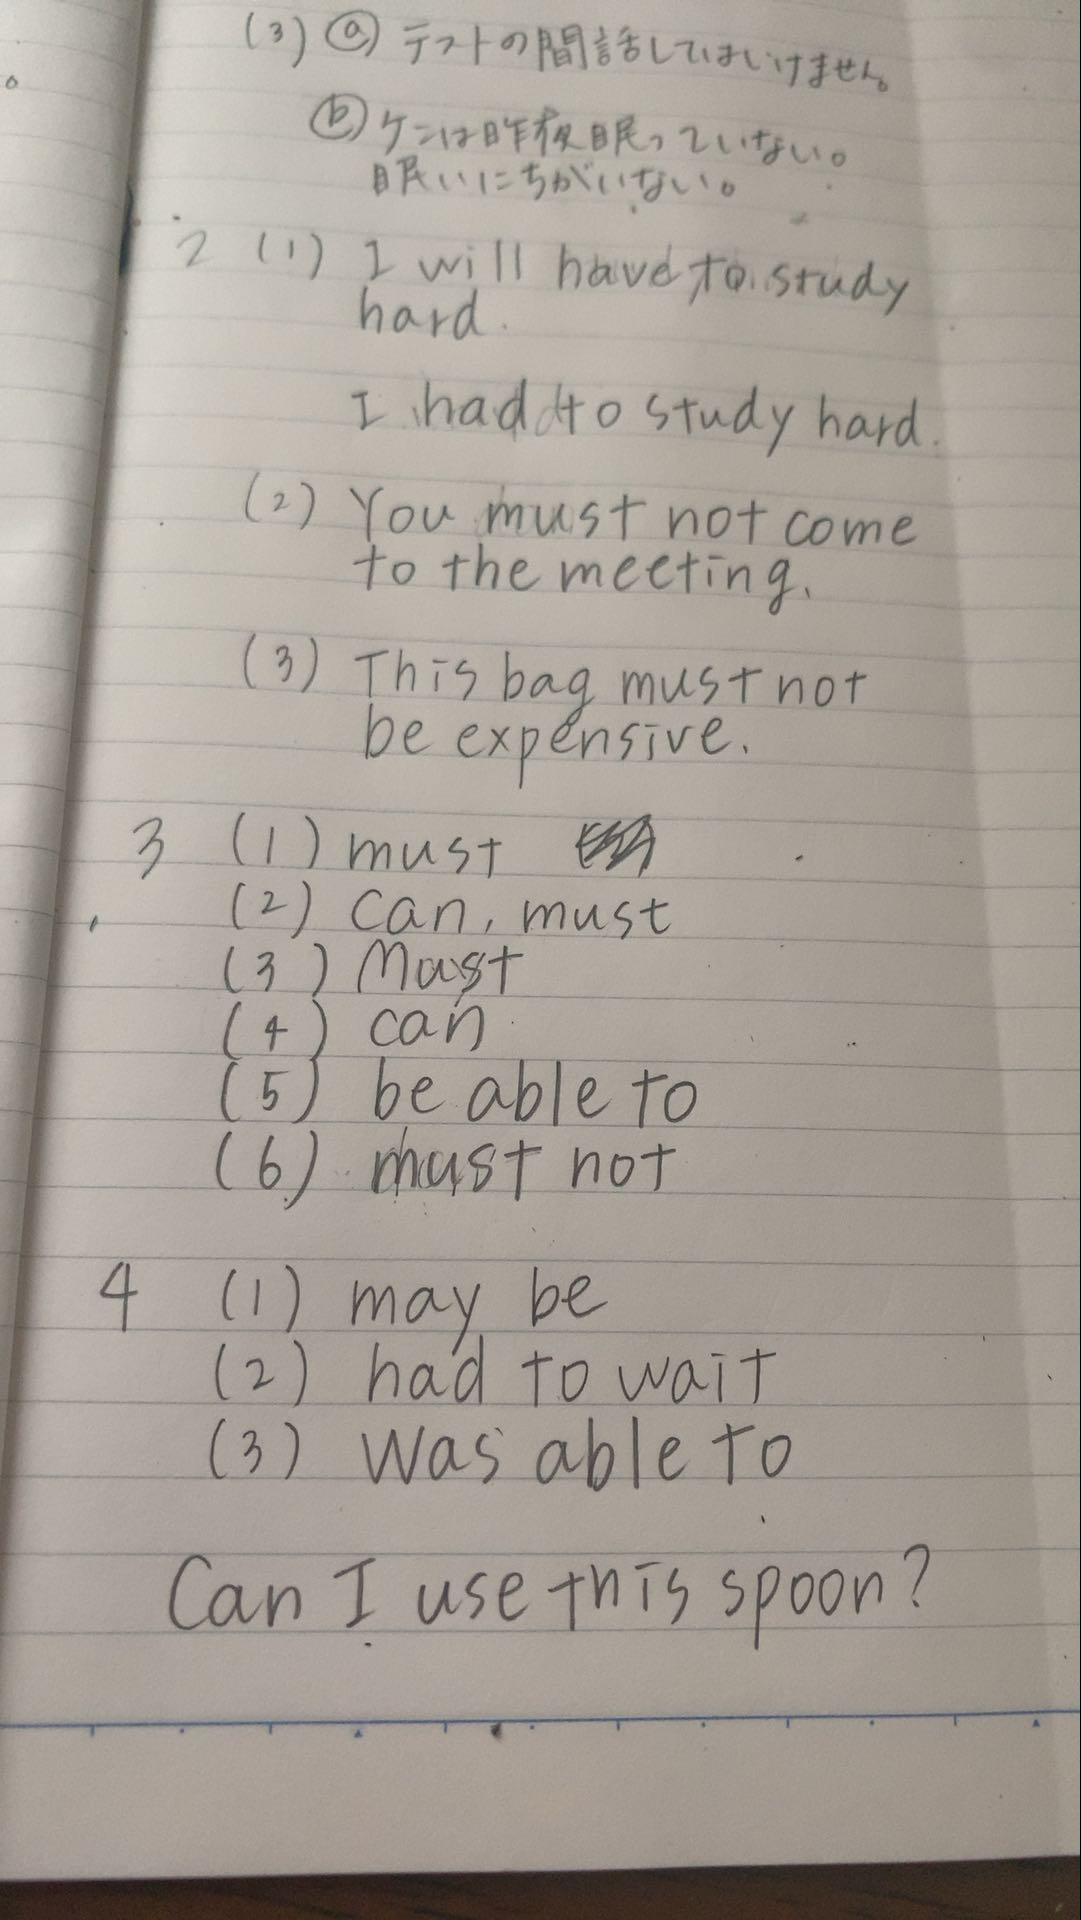 (3) ⓐ テストの間話してはいけません。
ⓑ ケンは昨夜眠っていない。
眠いにちがいない。
2 (1) I will have to study
hard.
I had to study hard.
(2) You must not come
to the meeting.
(3) This bag must not
be expensive.
3 (1) must
(2) can, must
(3) Must
(4) can
(5) be able to
(6) must not
4 (1) may be
(2) had to wait
(3) was able to
Can I use this spoon?